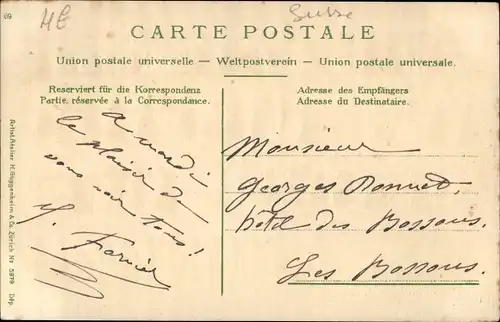 69
ME
Suisse
CARTE POSTALE
Union postale universelle — Weltpostverein — Union postale universale.
Reserviert für die Korrespondenz
Partie réservée à la Correspondance.
Adresse des Empfängers
Adresse du Destinataire.
A mardi
le plaisir de
vous voir tous!
Monsieur
Georges Bonnet,
hôtel des Bossons.
Les Bossons.
Artist. Atelier H. Guggenheim & Co. Zürich Nr 5879 Dép.